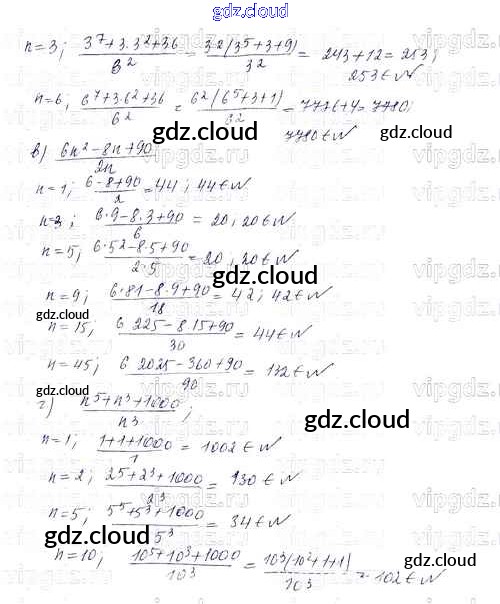 gdz.cloud
n=3; (3^7+3·3^2+36)/3^2 = 3^2(3^5+3+9)/3^2 = 243+12=253;
253 ∈ N
n=6; (6^7+3·6^2+36)/6^2 = 6^2(6^5+3+1)/6^2 = 7776+4=7780;
7780 ∈ N
gdz.cloud
в) (6n^2-8n+90)/2n
n=1; (6-8+90)/2 = 44; 44 ∈ N
gdz.cloud
n=3; (6·9-8·3+90)/6 = 20, 20 ∈ N
n=5; (6·5^2-8·5+90)/2·5 = 20, 20 ∈ N
gdz.cloud
n=9; (6·81-8·9+90)/18 = 42; 42 ∈ N
gdz.cloud
n=15; (6 225-8 15+90)/30 = 44 ∈ N
n=45; (6 2025-360+90)/90 = 132 ∈ N
gdz.cloud
г) (n^5+n^3+1000)/n^3;
n=1; (1+1+1000)/1 = 1002 ∈ N
gdz.cloud
n=2; (2^5+2^3+1000)/2^3 = 130 ∈ N
n=5; (5^5+5^3+1000)/5^3 = 34 ∈ N
gdz.cloud
n=10; (10^5+10^3+1000)/10^3 = 10^3(10^2+1+1)/10^3 = 102 ∈ N
gdz.cloud